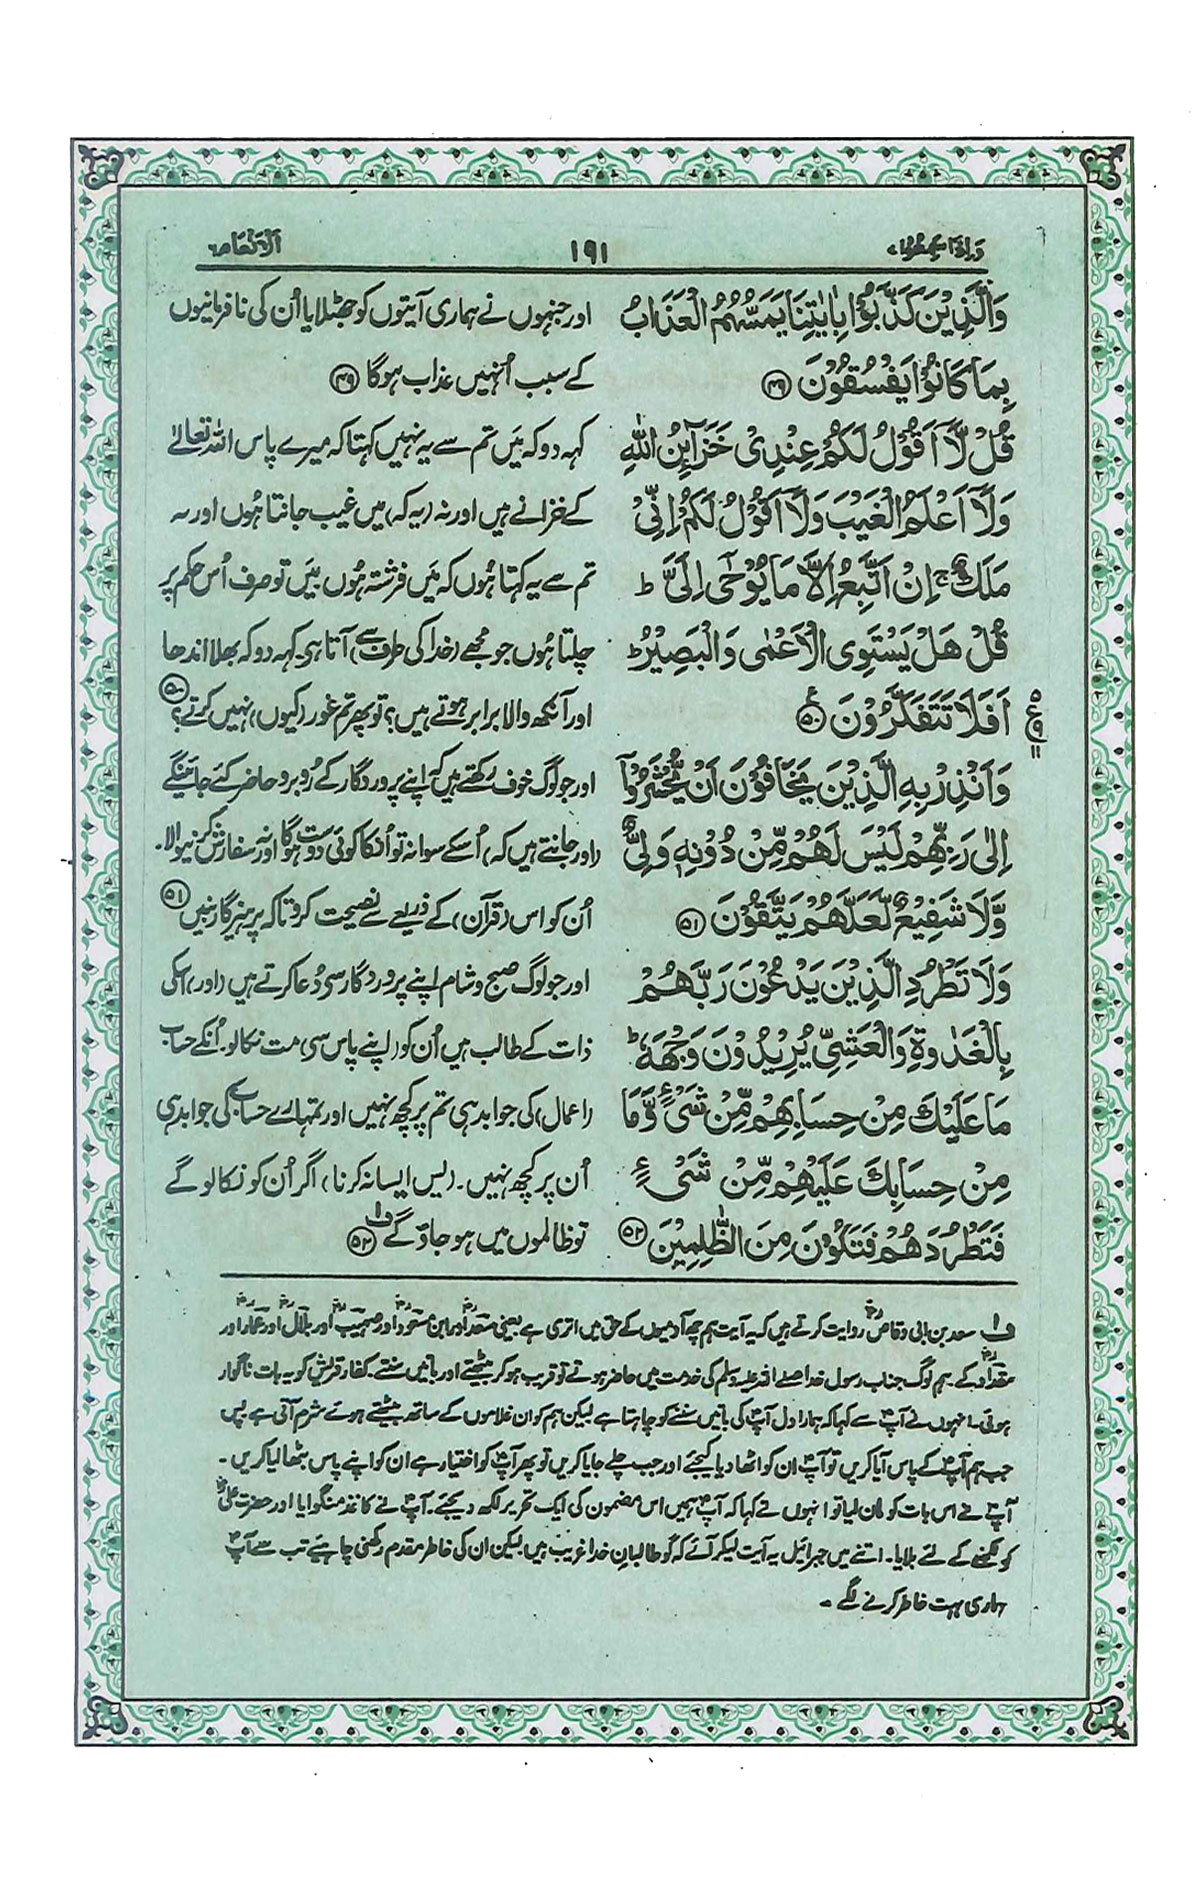 وَإِذَا سَمِعُوا ٧
١٩١
اَلْاَنْعَام ٦
وَالَّذِيْنَ كَذَّبُوْا بِاٰيٰتِنَا يَمَسُّهُمُ الْعَذَابُ
بِمَا كَانُوْا يَفْسُقُوْنَ ﴿٤٩﴾
قُلْ لَّاۤ اَقُوْلُ لَكُمْ عِنْدِىْ خَزَآئِنُ اللّٰهِ
وَلَاۤ اَعْلَمُ الْغَيْبَ وَلَاۤ اَقُوْلُ لَكُمْ اِنِّىْ
مَلَكٌ ۚ اِنْ اَتَّبِعُ اِلَّا مَا يُوْحٰۤى اِلَىَّ ؕ
قُلْ هَلْ يَسْتَوِى الْاَعْمٰى وَالْبَصِيْرُ ؕ
اَفَلَا تَتَفَكَّرُوْنَ ﴿٥٠﴾
وَاَنْذِرْ بِهِ الَّذِيْنَ يَخَافُوْنَ اَنْ يُّحْشَرُوْۤا
اِلٰى رَبِّهِمْ لَيْسَ لَهُمْ مِّنْ دُوْنِهٖ وَلِىٌّ
وَّلَا شَفِيْعٌ لَّعَلَّهُمْ يَتَّقُوْنَ ﴿٥١﴾
وَلَا تَطْرُدِ الَّذِيْنَ يَدْعُوْنَ رَبَّهُمْ
بِالْغَدٰوةِ وَالْعَشِىِّ يُرِيْدُوْنَ وَجْهَهٗ ؕ
مَا عَلَيْكَ مِنْ حِسَابِهِمْ مِّنْ شَىْءٍ وَّمَا
مِنْ حِسَابِكَ عَلَيْهِمْ مِّنْ شَىْءٍ
فَتَطْرُدَهُمْ فَتَكُوْنَ مِنَ الظّٰلِمِيْنَ ﴿٥٢﴾
اور جنہوں نے ہماری آیتوں کو جھٹلایا اُن کی نافرمانیوں
کے سبب اُنہیں عذاب ہوگا ﴿٤٩﴾
کہہ دو کہ میَں تم سے یہ نہیں کہتا کہ میرے پاس اللہ تعالےٰ
کے خزانے ہیں اور نہ (یہ کہ) میں غیب جانتا ہُوں اور نہ
تم سے یہ کہتا ہُوں کہ میَں فرشتہ ہُوں میَں تو صرف اُس حکم پر
چلتا ہُوں جو مجھے (خدا کی طرف سے) آتا ہی۔ کہہ دو کہ بھلا اندھا
اور آنکھ والا برابر ہوتے ہیں؟ تو پھر تم غور (کیوں) نہیں کرتے؟ ﴿٥٠﴾
اور جو لوگ خوف رکھتے ہیں کہ اپنے پروردگار کے رُوبرو حاضر کئے جائینگے
(اور جانتے ہیں کہ) اُسکے سوا نہ تو اُنکا کوئی دوست ہوگا اور نہ سفارش کرنیوالا۔
اُن کو اس (قرآن) کے ذریعے سے نصیحت کرو تاکہ پرہیزگار بنیں ﴿٥١﴾
اور جو لوگ صبح و شام اپنے پروردگار سی دُعا کرتے ہیں (اور) اسکی
ذات کے طالب ہیں اُن کو (اپنے پاس سی) مت نکالو۔ اُنکے حساب
(اعمال) کی جوابدہی تم پر کچھ نہیں اور تمہارے حساب کی جوابدہی
اُن پر کچھ نہیں۔ (پس ایسا نہ کرنا) اگر اُن کو نکالوگے
تو ظالموں میں ہوجاؤگے ف۱ ﴿٥٢﴾
ع ٥ ٩ ١١
ف۱ سعد بن ابی وقاصؓ روایت کرتے ہیں کہ یہ آیت ہم چھ آدمیوں کے حق میں اتری ہے یعنی سعدؓ اور ابن مسعودؓ اور صہیبؓ اور بلالؓ اور عمارؓ اور
مقدادؓ کے۔ ہم لوگ جناب رسول خدا صلے اللہ علیہ وسلم کی خدمت میں حاضر ہوتے تو قریب ہو کر بیٹھتے اور باتیں سنتے۔ کفار قریش کو یہ بات ناگوار
ہوئی۔ انہوں نے آپؐ سے کہا کہ ہمارا دل آپؐ کی باتیں سننے کو چاہتا ہے لیکن ہم کو ان غلاموں کے ساتھ بیٹھتے ہوئے شرم آتی ہے پس
جب ہم آپؐ کے پاس آیا کریں تو آپؐ ان کو اٹھا دیا کیجئے اور جب چلے جایا کریں تو پھر آپؐ کو اختیار ہے ان کو اپنے پاس بٹھا لیا کریں۔
آپؐ نے اس بات کو مان لیا تو انہوں نے کہا کہ آپؐ ہمیں اس مضمون کی ایک تحریر لکھ دیجئے۔ آپؐ نے کاغذ منگوایا اور حضرت علیؓ
کو لکھنے کے لئے بلایا۔ اتنے میں جبرائیل یہ آیت لیکر آئے کہ گو طالبانِ خدا غریب ہیں لیکن ان کی خاطر مقدم رکھنی چاہیئے تب سے آپؐ
ہماری بہت خاطر کرنے لگے۔